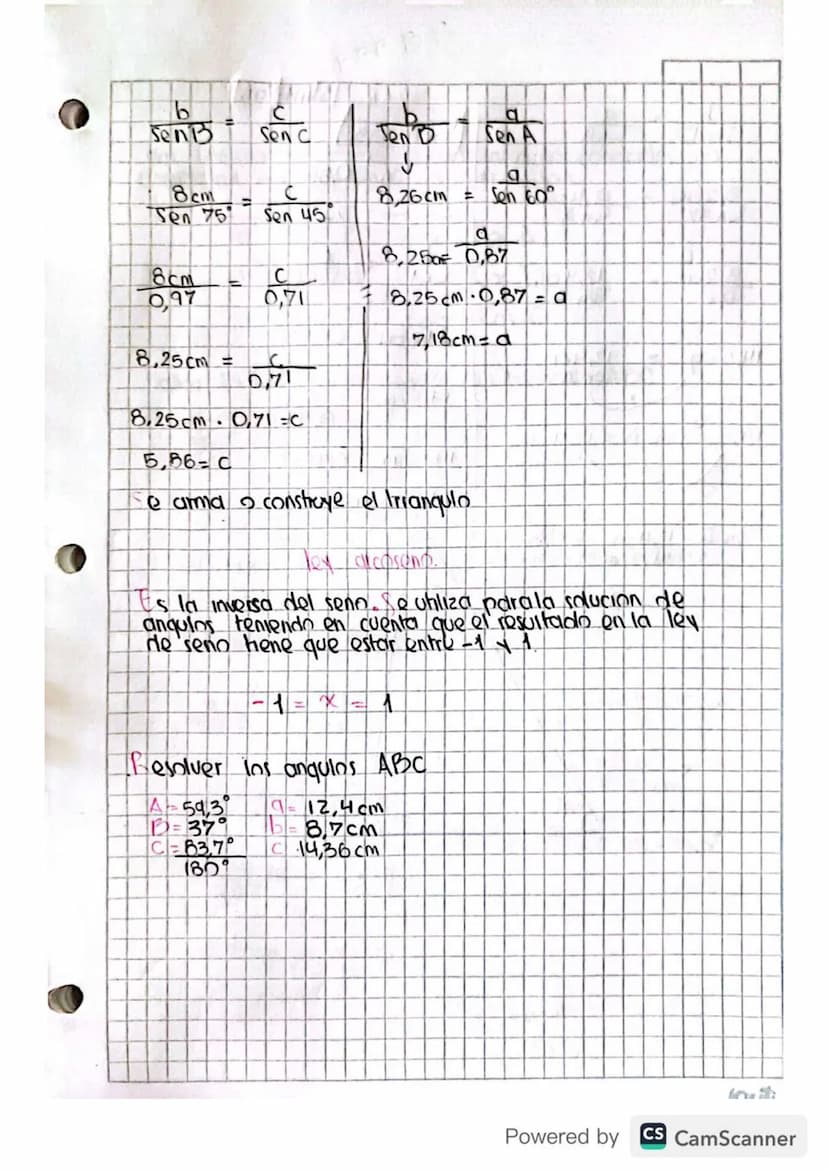 b/Sen B = c/Sen C
8cm/Sen 75° = c/Sen 45°
8cm/0,97 = c/0,71
8,25cm = c/0,71
8,25cm . 0,71 = c
5,86 = c
b/Sen B = a/Sen A
↓
8,26cm = a/Sen 60°
8,25cm = a/0,87
= 8,25cm · 0,87 = a
7,18cm = a
Se arma o construye el triangulo
ley arcoseno.
Es la inversa del seno. Se utiliza para la solucion de
angulos teniendo en cuenta que el resultado en la ley
de seno tiene que estar entre -1 y 1.
-1 = x = 1
Resolver los angulos ABC
A = 59,3° a = 12,4cm
B = 37° b = 8,7cm
C = 83,7° c 14,36cm
180°
Powered by CS CamScanner